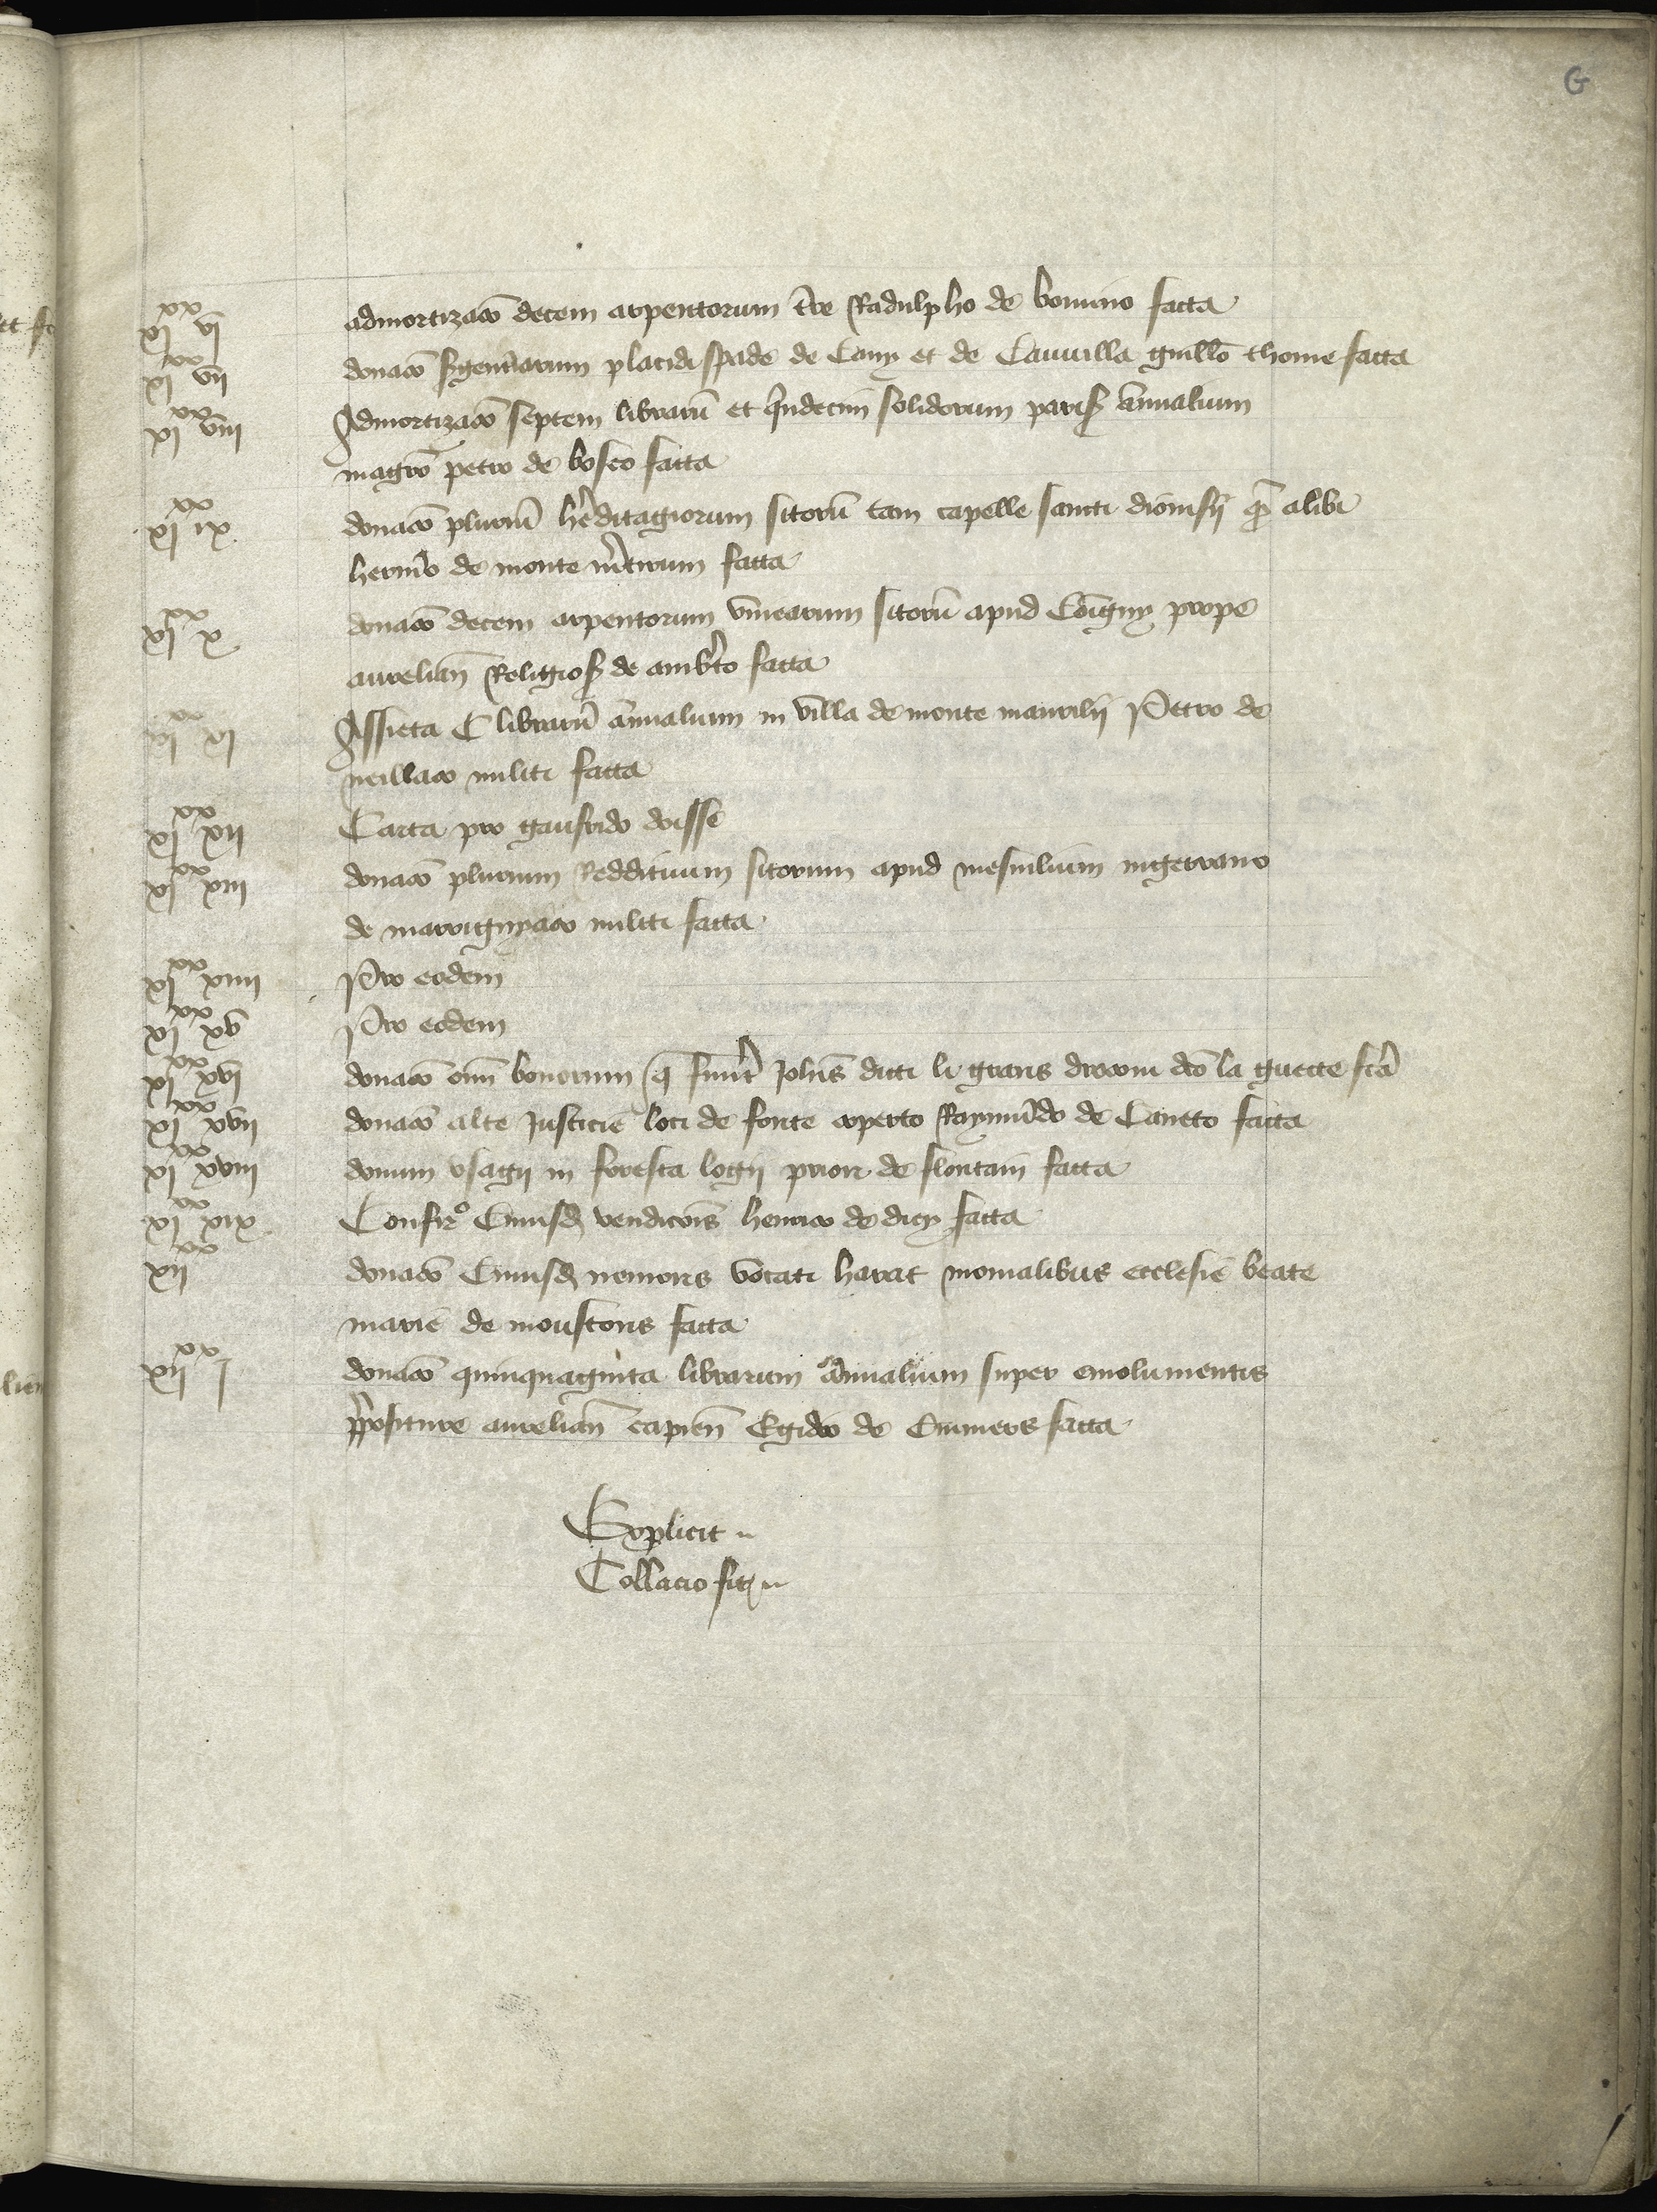 G
xx
xi vi admortizacō decem arpentorum tre Radulpho de bomino facta
xx
xi vii donacō sergentiarum placidispade de Cany et de Cauvilla guillo thome facta
xx
xi viii Admortizacō septem librarū et quindecim solidorum paris annualium
magro petro de bosco facta
xx
xi ix donacō plurium hereditagiorum sitorū tam capelle sancti dionisii qm alibi
hermo de monte martirum facta
xx
xi x donacō decem arpentorum vinearum sitorū apud Coigny prope
aurelian Religios de amberto facta
xx
xi xi Assieta C librarū annualium in villa de monte maurilii Petro de
neillaco militi facta
xx
xi xii Carta pro gaufrido doisse
xx
xi xiii donacō plurium Reddituum sitorum apud mesnilium ingerrano
de marrignyaco militi facta
xx
xi xiiii Pro eodem
xx
xi xv Pro eodem
xx
xi xvi donacō oīm bonorum q fuerūt Johis dicti li grans droconi dco la guete fca
xx
xi xvii donacō alte Justicie loci de fonte aperto Raymūdo de Caneto facta
xx
xi xviii donum usagii in foresta logii priori de flontain facta
xx
xi xix Confirº Cuiusd vendicōis henrico de dicy facta
xx
xii donacō Cuiusd nemoris vocati harat monialibus ecclesie beate
marie de moustons facta
xx
xii i donacō quinquaginta librarum annualium super emolumentis
prepositure aurelian capien Egidio de Cumers facta
Explicit
Collacio fit